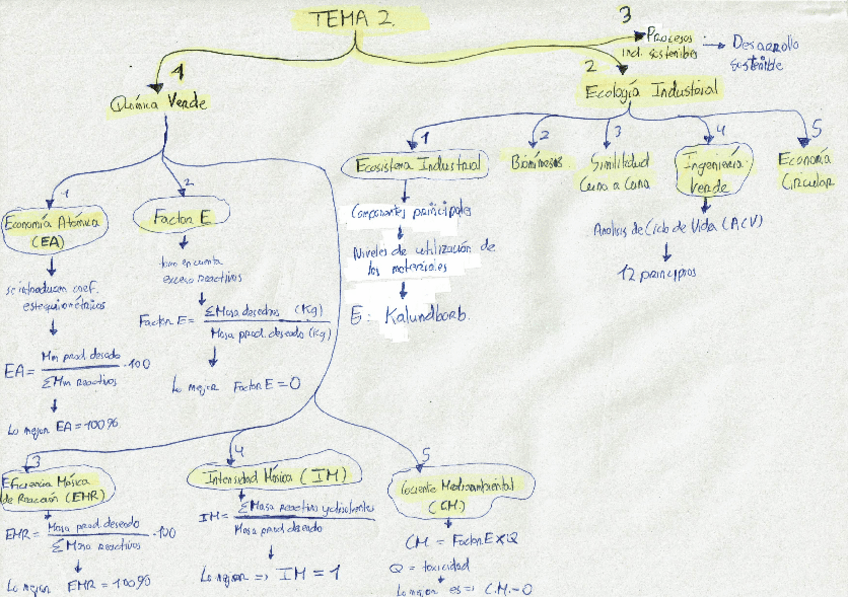 TEMA 2.
3
Procesos
ind. sostenibles
Desarrollo
sostenible
4
Química Verde
2
Ecología Industrial
1
Ecosistema Industrial
2
Biomímesis.
3
Similitud
Cuna a Cuna
4
Ingeniería
Verde
5
Economía
Circular
Componentes principales
Niveles de utilización de
los materiales
E: Kalundborb.
Analisis de Ciclo de Vida (ACV)
12 principios
1
Economía Atómica
(EA)
se introducen coef.
estequiométricos
EA = Mm prod. deseado / Σ Mm reactivos · 100
Lo mejor EA = 100%
2
Factor E
tiene en cuenta
exceso reactivos
Factor E = Σ Masa desechos (Kg) / Masa prod. deseado (Kg)
Lo mejor Factor E = 0
3
Eficiencia Másica
de Reacción (EMR)
EMR = Masa prod. deseado / Σ Masa reactivos · 100
Lo mejor EMR = 100%
4
Intensidad Másica (IM)
IM = Σ Masa reactivos y disolventes / Masa prod. deseado
Lo mejor => IM = 1
5
Cociente Medioambiental
(CM.)
CM = Factor E x Q
Q = toxicidad
Lo mejor es => C.M. = 0